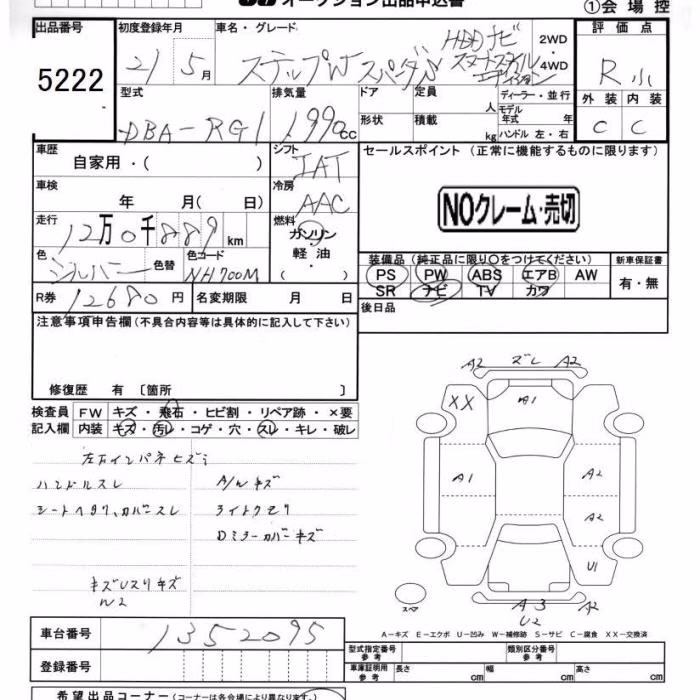 オークション出品申込書
①会場控
出品番号 初度登録年月 車名・グレード 評価点
5222 21 5月 ステップW スパーダS HDDナビ スマートスタイル エディション 2WD・4WD R小
型式 排気量 ドア 定員 人 ディーラー・並行 外装 内装
DBA-RG1 1990cc 形状 積載 kg モデル年式 年 ハンドル 左・右 C C
車歴 自家用・( ) シフト IAT セールスポイント (正常に機能するものに限ります)
車検 年 月( 日) 冷房 AAC
NOクレーム・売切
走行 12万0千889km 燃料 ガソリン・軽油・( )
色 シルバー 色替 色コード NH700M
装備品 (純正品に限り○をつけてください) 新車保証書
PS PW ABS エアB AW 有・無
SR ナビ TV カワ
R券 12680円 名変期限 月 日 後日品
注意事項申告欄 (不具合内容等は具体的に記入して下さい)
修復歴 有 [箇所 ]
検査員 FW キズ・飛石・ヒビ割・リペア跡・×要
記入欄 内装 キズ・汚レ・コゲ・穴・スレ・キレ・破レ
ハンドルスレ A/Wキズ
ライトクモリ
Dミラーカバーキズ
A2 ズレ A2
XX A1
A1 A2
A2
U1
スペア A3 A2
U2
A−キズ E−エクボ U−凹み W−補修跡 S−サビ C−腐食 XX−交換済
車台番号 1352095 型式指定番号 参考 類別区分番号 参考
登録番号 車庫証明用 参考 長さ cm 幅 cm 高さ cm
希望出品コーナー (コーナーは各会場により異なります。)